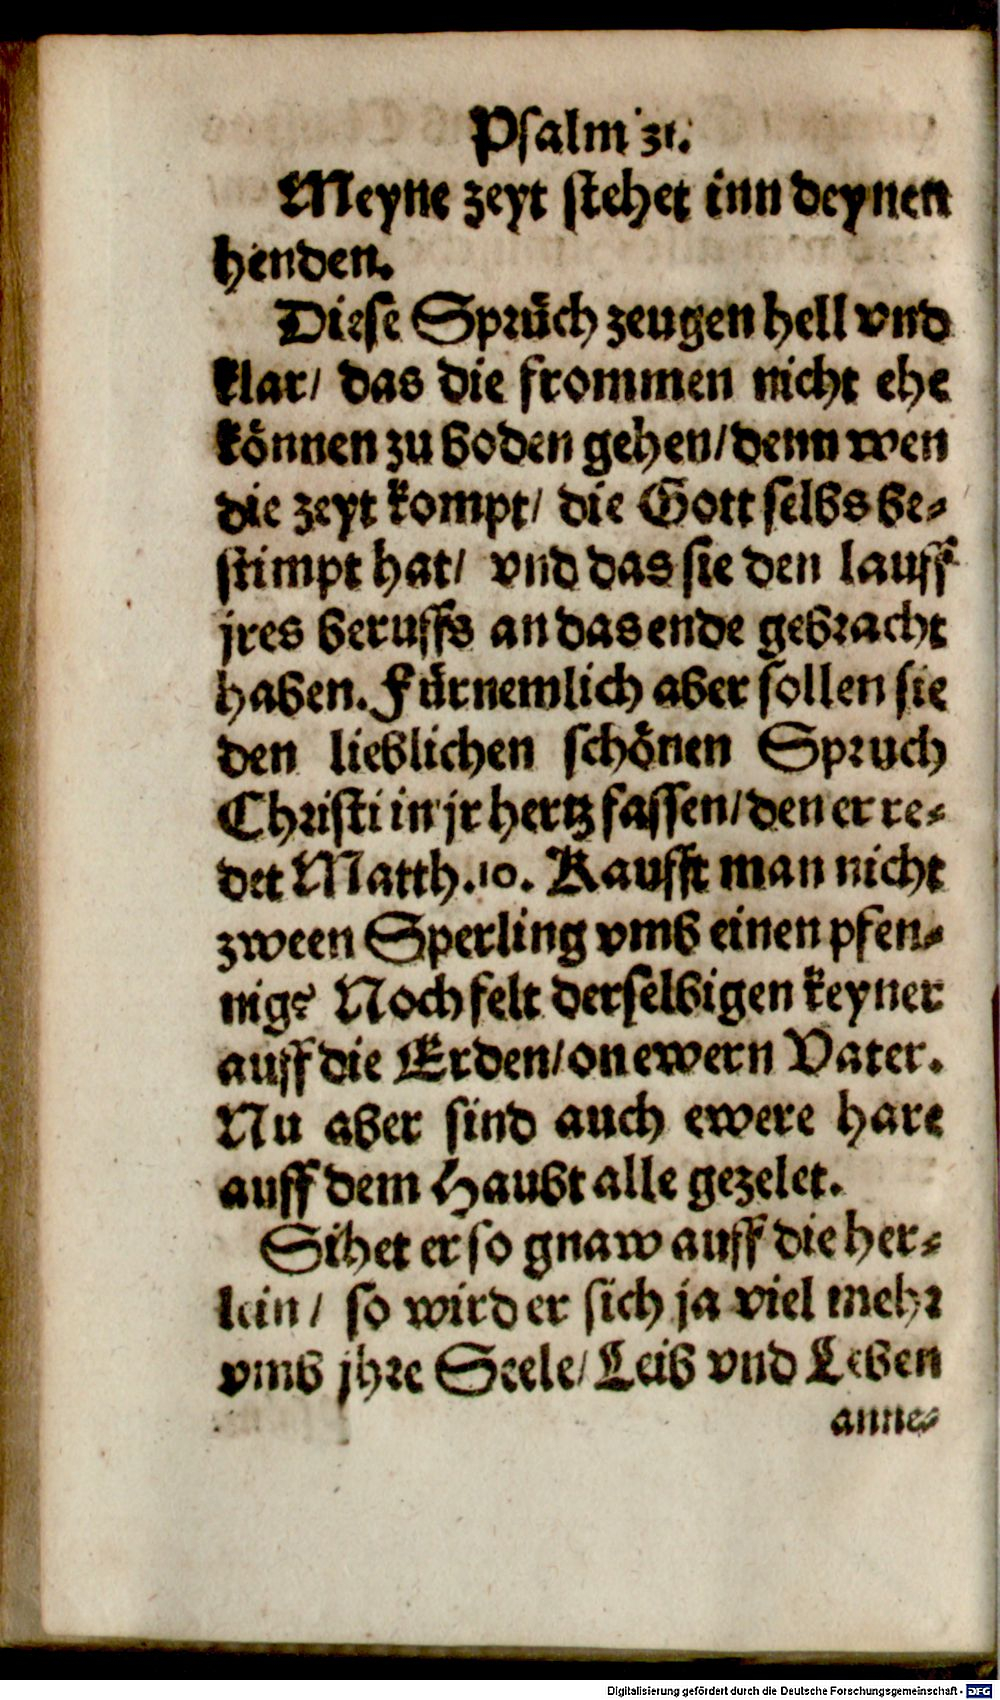 Psalm 31.
Meyne zeyt stehet inn deynen
henden.
Diese Sprüch zeugen hell vnd
klar/ das die frommen nicht ehe
können zu boden gehen/ denn wen
die zeyt kompt/ die Gott selbs be-
stimpt hat/ vnd das sie den lauff
jres beruffs an das ende gebracht
haben. Fürnemlich aber sollen sie
den lieblichen schönen Spruch
Christi in jr hertz fassen/ den er re-
det Matth. 10. Kaufft man nicht
zween Sperling vmb einen pfen-
nig? Noch felt derselbigen keyner
auff die Erden/ on ewern Vater.
Nu aber sind auch ewere hare
auff dem Haubt alle gezelet.
Sihet er so gnaw auff die her-
lein/ so wird er sich ja viel mehr
vmb jhre Seele/ Leib vnd Leben
anne-
Digitalisierung gefördert durch die Deutsche Forschungsgemeinschaft - DFG